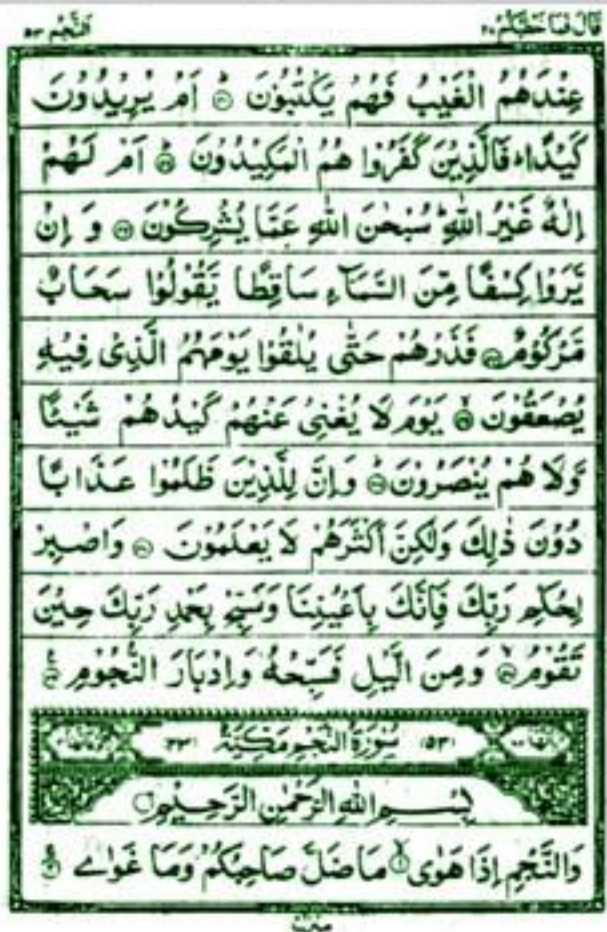 قال فما خطبکم ۲۷
النجم ۵۳
عِنْدَهُمُ الْغَيْبُ فَهُمْ يَكْتُبُوْنَ ۞ اَمْ يُرِيْدُوْنَ
كَيْدًا ؕ فَالَّذِيْنَ كَفَرُوْا هُمُ الْمَكِيْدُوْنَ ۞ اَمْ لَهُمْ
اِلٰهٌ غَيْرُ اللّٰهِ ؕ سُبْحٰنَ اللّٰهِ عَمَّا يُشْرِكُوْنَ ۞ وَ اِنْ
يَّرَوْا كِسْفًا مِّنَ السَّمَآءِ سَاقِطًا يَّقُوْلُوْا سَحَابٌ
مَّرْكُوْمٌ ۞ فَذَرْهُمْ حَتّٰى يُلٰقُوْا يَوْمَهُمُ الَّذِيْ فِيْهِ
يُصْعَقُوْنَ ۞ يَوْمَ لَا يُغْنِيْ عَنْهُمْ كَيْدُهُمْ شَيْئًا
وَّلَا هُمْ يُنْصَرُوْنَ ۞ وَاِنَّ لِلَّذِيْنَ ظَلَمُوْا عَذَابًا
دُوْنَ ذٰلِكَ وَلٰكِنَّ اَكْثَرَهُمْ لَا يَعْلَمُوْنَ ۞ وَاصْبِرْ
لِحُكْمِ رَبِّكَ فَاِنَّكَ بِاَعْيُنِنَا وَسَبِّحْ بِحَمْدِ رَبِّكَ حِيْنَ
تَقُوْمُ ۞ وَمِنَ الَّيْلِ فَسَبِّحْهُ وَاِدْبَارَ النُّجُوْمِ ۞
(۵۳) سُوْرَةُ النَّجْمِ مَكِّيَّةٌ (۲۳)
بِسْمِ اللّٰهِ الرَّحْمٰنِ الرَّحِيْمِ
وَالنَّجْمِ اِذَا هَوٰى ۞ مَا ضَلَّ صَاحِبُكُمْ وَمَا غَوٰى ۞